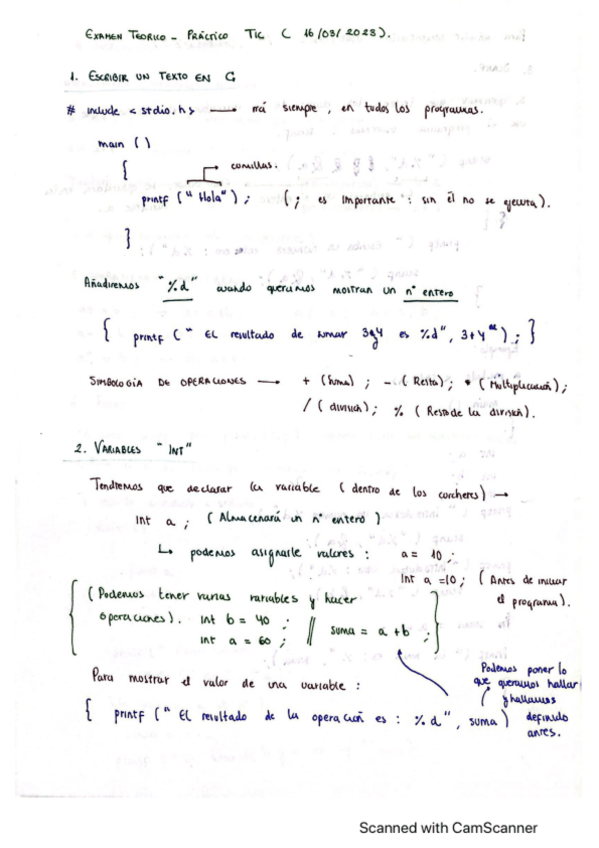 EXAMEN TEORICO - PRÁCTICO TIC ( 16/03/2023).
1. ESCRIBIR UN TEXTO EN C
# include < stdio.h > → irá siempre, en todos los programas.
main ( )
{ → comillas.
printf (" Hola" ) ; ( ; es importante : sin él no se ejecuta ).
}
Añadiremos "%d" cuando queramos mostrar un nº entero
{ printf (" EL resultado de sumar 3y4 es %d", 3+4 ) ; }
SIMBOLOGÍA DE OPERACIONES → + (suma) ; - (Resta) ; * (Multiplicación) ;
/ ( división) ; % ( Resto de la división ).
2. VARIABLES " INT"
Tendremos que declarar la variable ( dentro de los corchetes) →
Int a ; ( Almacenará un nº entero )
↳ podemos asignarle valores : a = 10 ;
Int a =10 ; ( Antes de iniciar
el programa).
( Podemos tener varias variables y hacer
operaciones). int b = 40 ;
int a = 60 ; // suma = a+b ;
Para mostrar el valor de una variable :
Podemos poner lo
que queramos hallar
y hallamos
definido
antes.
{ printf (" EL resultado de la operación es : %d", suma )
Scanned with CamScanner